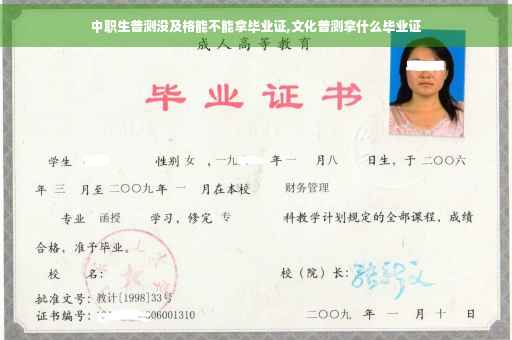 中职生普测没及格能不能拿毕业证,文化普测拿什么毕业证
成人高等教育
毕业证书
学生 性别 女 ，一九 年 一 月 八 日生，于 二〇〇六
年 三 月至 二〇〇九 年 一 月在本校 财务管理
专业 函授 学习，修完 专 科教学计划规定的全部课程，成绩
合格，准予毕业。
校 名： 校（院）长：
批准文号：教计[1998]33号
证书编号： 06001310 二〇〇九 年 一 月 十 日